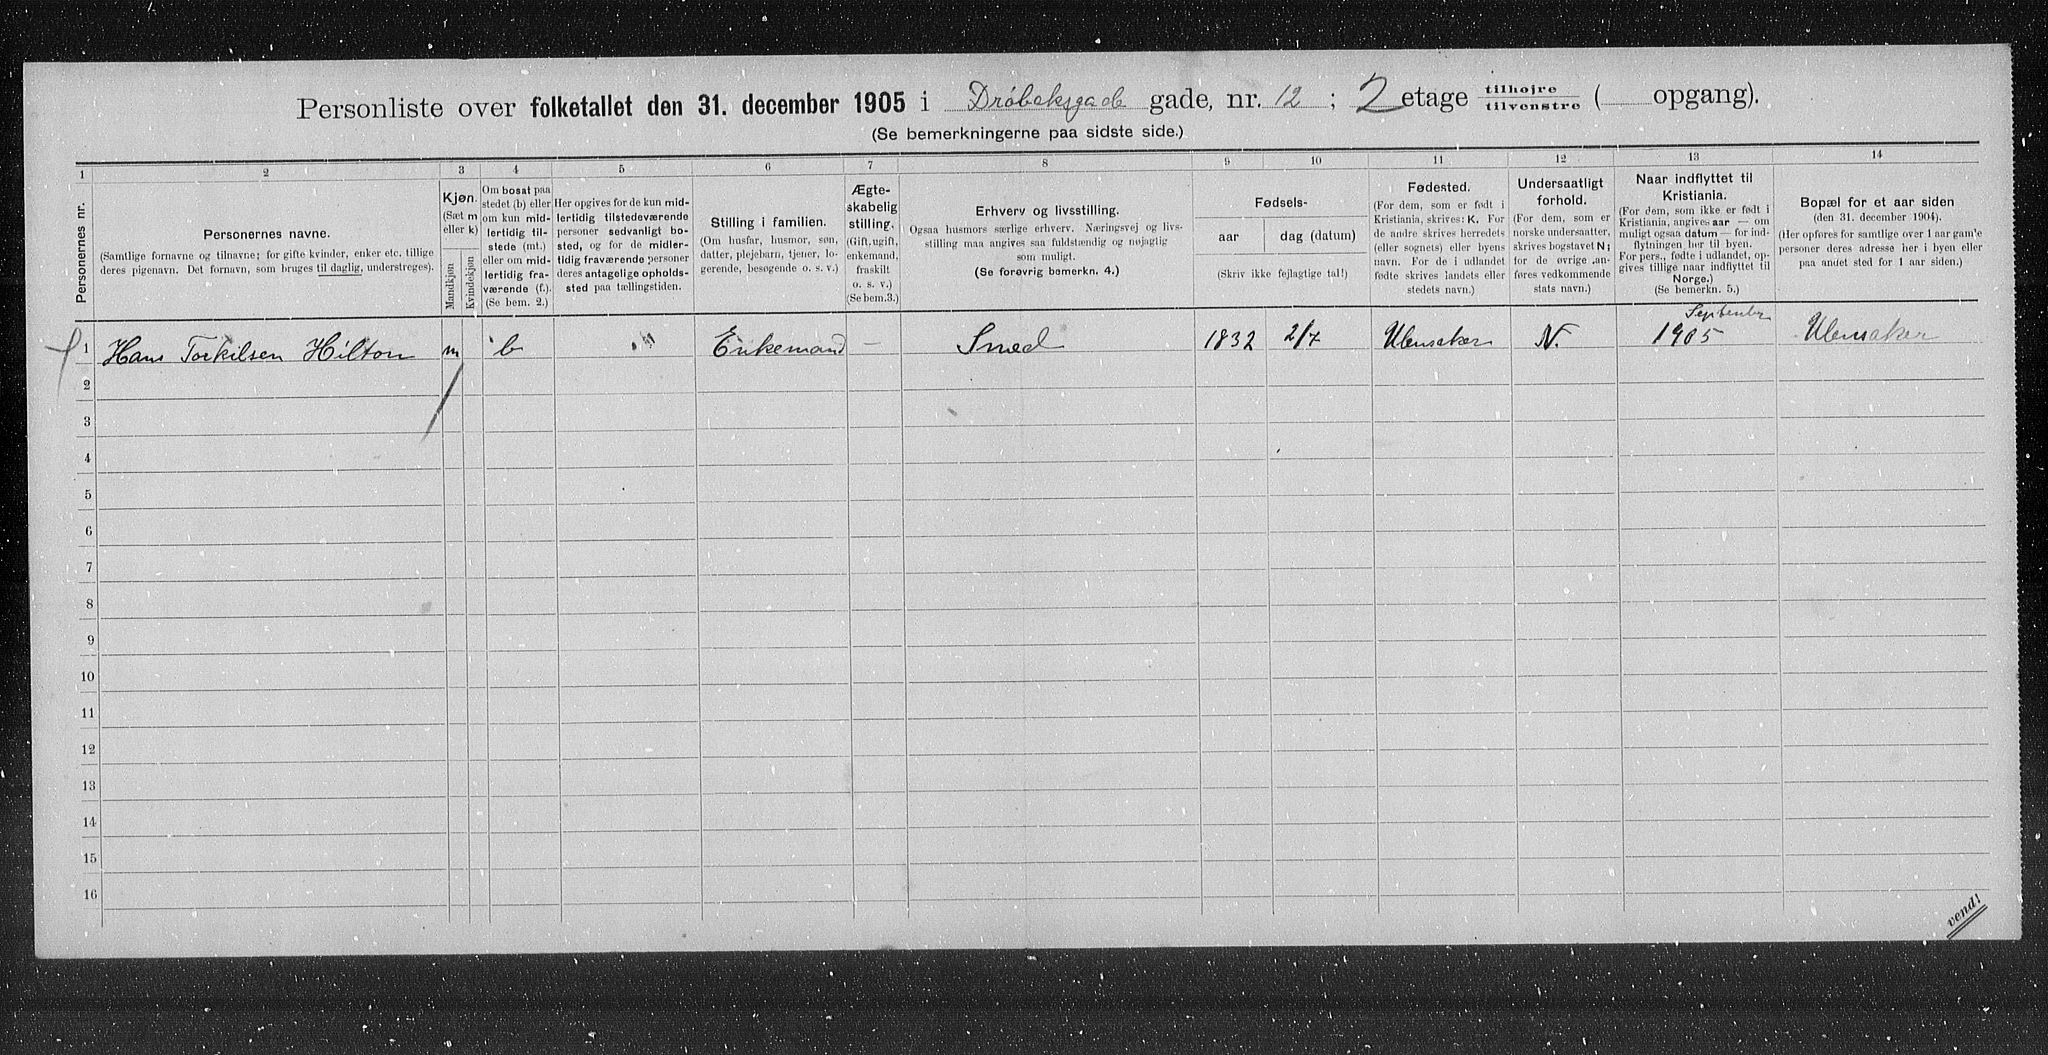 Personliste over folketallet den 31. december 1905 i Drøbaksgade gade, nr. 12 ; 2 etage tilhøjre tilvenstre ( opgang).
(Se bemerkningerne paa sidste side.)
1 2 3 4 5 6 7 8 9 10 11 12 13 14
Personernes nr.
Personernes navne.
(Samtlige fornavne og tilnavne; for gifte kvinder, enker etc. tillige
deres pigenavn. Det fornavn, som bruges til daglig, understreges).
Kjøn.
(Sæt m
eller k)
Mandkjøn
Kvindekjøn
Om bosat paa
stedet (b) eller
om kun mid-
lertidig til-
stede (mt.)
eller om mid-
lertidig fra-
værende (f.).
(Se bem. 2.)
Her opgives for de kun mid-
lertidig tilstedeværende
personer sedvanligt bo-
sted, og for de midler-
tidig fraværende personer
deres antagelige opholds-
sted paa tællingstiden.
Stilling i familien.
(Om husfar, husmor, søn,
datter, plejebarn, tjener, lo-
gerende, besøgende o. s. v.)
Ægte-
skabelig
stilling.
(Gift, ugift,
enkemand,
fraskilt
o. s. v.)
(Se bem.3.)
Erhverv og livsstilling.
Ogsaa husmors særlige erhverv. Næringsvej og livs-
stilling maa angives saa fuldstændig og nøjagtig
som muligt.
(Se forøvrig bemerkn. 4.)
Fødsels-
aar dag (datum)
(Skriv ikke fejlagtige tal!)
Fødested.
(For dem, som er født i
Kristiania, skrives: K. For
de andre skrives herredets
(eller sognets) eller byens
navn. For de i udlandet
fødte skrives landets eller
stedets navn.)
Undersaatligt
forhold.
(For dem, som er
norske undersaatter,
skrives bogstavet N;
for de øvrige an-
føres vedkommende
stats navn.)
Naar indflyttet til
Kristiania.
(For dem, som ikke er født i
Kristiania, angives aar — om
muligt ogsaa datum — for ind-
flytningen her til byen.
For pers., fødte i udlandet, op-
gives tillige naar indflyttet til
Norge.)
(Se bemerkn. 5.)
Bopæl for et aar siden
(den 31. december 1904).
(Her opføres for samtlige over 1 aar gam'e
personer deres adresse her i byen eller
paa andet sted for 1 aar siden.)
September
1 Hans Torkilsen Hilton m b " Enkemand — Smed 1832 2/7 Ulensaker N. 1905 Ulensaker
2
3
4
5
6
7
8
9
10
11
12
13
14
15
16
vend!